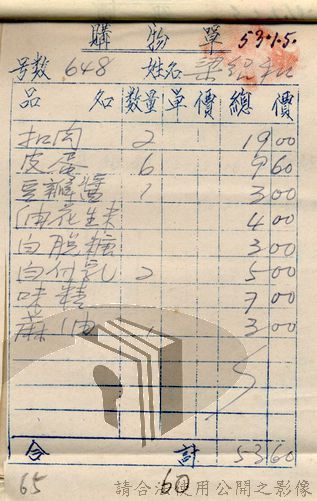 購物單 53.1.5.
号数 648 姓名 梁
品名 数量 單價 總價
扣肉 2 19 00
皮蛋 6 9 60
豆瓣醬 1 3 00
油花生 4 00
白脱糖 3 00
白付乳 2 5 00
味精 7 00
蔴油 1 3 00
合計 53 60
65 60
請合法使用公開之影像